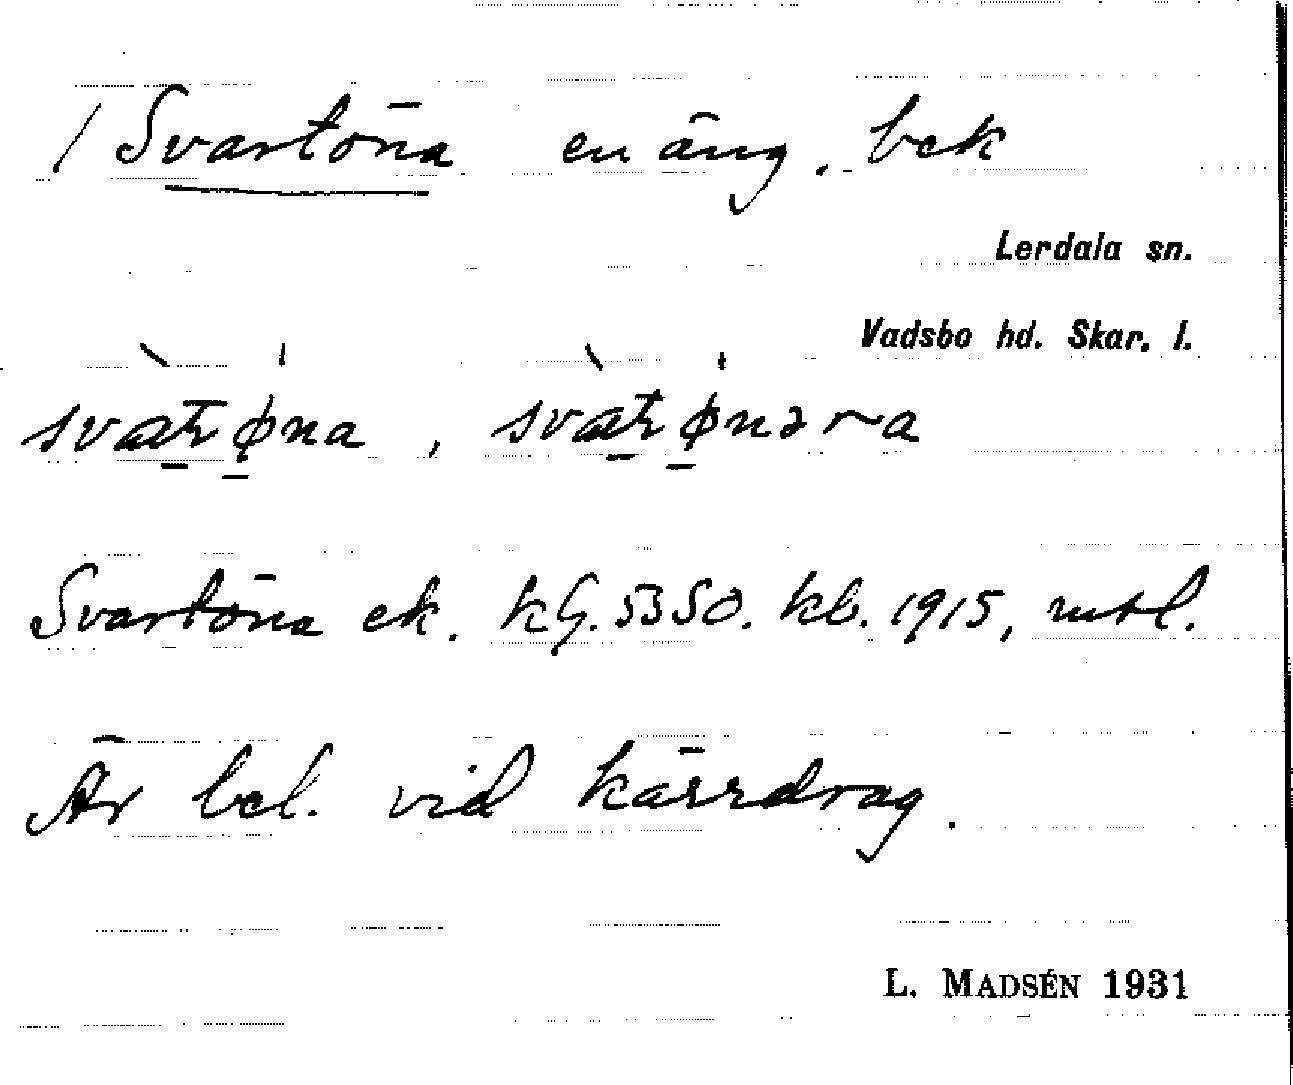 / Svartöna en äng. bek
Lerdala sn.
Vadsbo hd. Skar. l.
svatøna, svatønəra
Svartöna ek. KG. 5350. kb. 1915, mtl.
Är bel. vid kärrdrag.
L. MADSÉN 1931